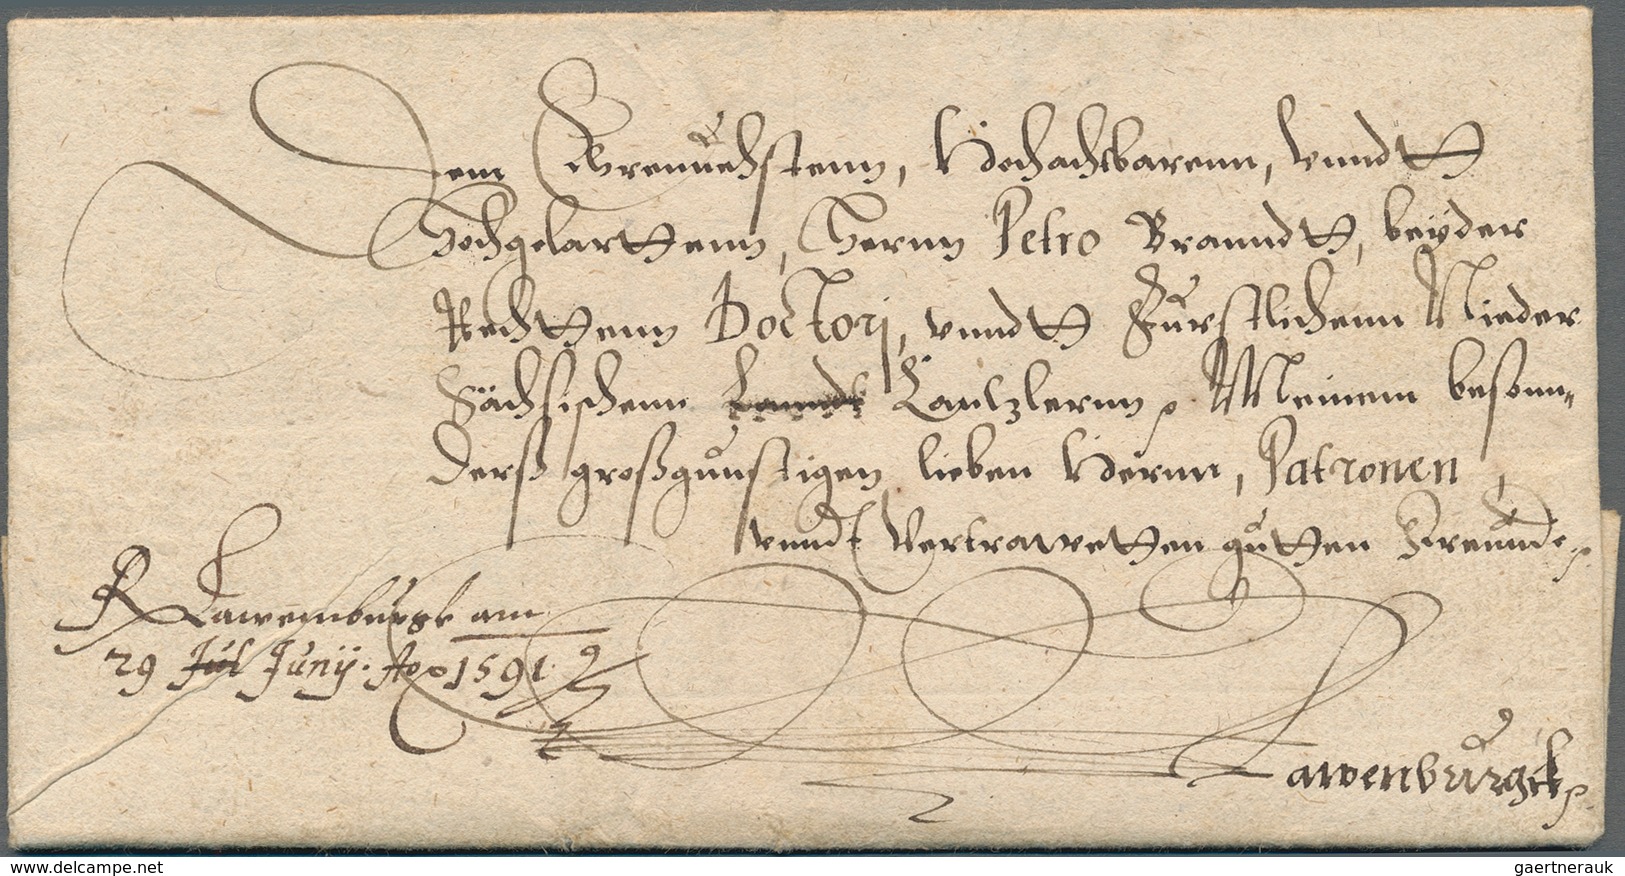 Dem Ehrenuehstenn, Hochachtbarenn, vnndtt
Hochgelarttenn, Hernn Petro Branndtt, beyder
Rechttenn Doctorj, vnndtt Furstlichenn Nieder
Sächsischenn Canlzlernn, Meinem besonn=
derß großgunstigen lieben Hernn, Patronen,
vnndt Vertrawetten gutten Freunde,
R Lawenburgk am
29 Jul Junij. Ao 1591
Lawenburgk
www.delcampe.net
gaertnerauk